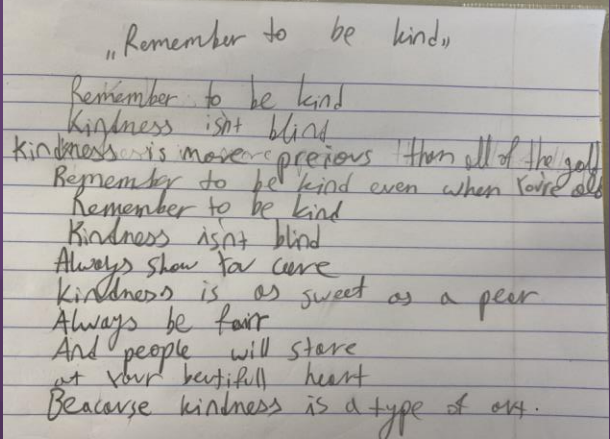 „Remember to be kind„
Remember to be kind
Kindness isnt blind
Kindness is more preious than all of the gold
Remember to be kind even when You're old
Remember to be kind
Kindness isnt blind
Always show You cere
Kindness is as sweet as a peer
Always be fairr
And people will stare
at Your beutifull heart
Beacause kindness is a type of art.